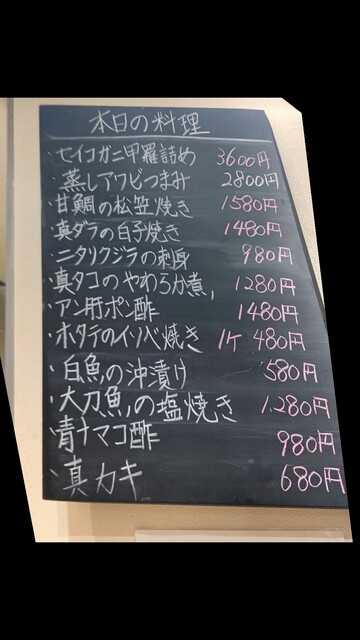 本日の料理
・セイコガニ甲羅詰め 3600円
・蒸しアワビつまみ 2800円
・甘鯛の松笠焼き 1580円
・真ダラの白子焼き 1480円
・ニタリクジラの刺身 980円
・真タコのやわらか煮 1280円
・アン肝ポン酢 1480円
・ホタテのイソベ焼き 1ケ 480円
・白魚の沖漬け 580円
・大刀魚の塩焼き 1.280円
・青ナマコ酢 980円
・真カキ 680円